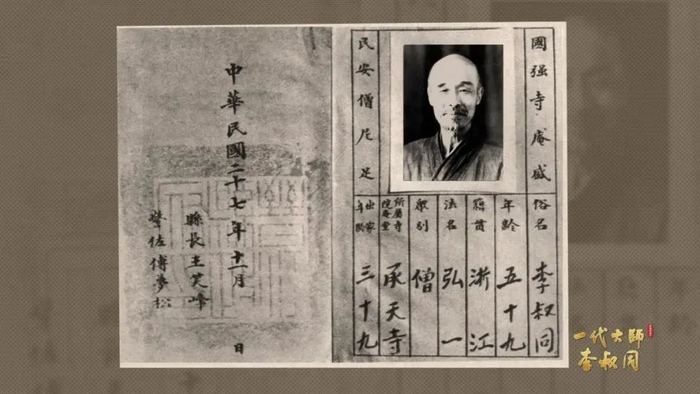 國强寺庵盛
民安僧尼足
俗名 李叔同
年齡 五十九
籍貫 浙江
法名 弘一
眾别 僧
所屬寺院庵堂 承天寺
出家年齡 三十九
中華民國二十七年十一月 日
縣長王笑峰
警佐傅夢松
一代大師
李叔同